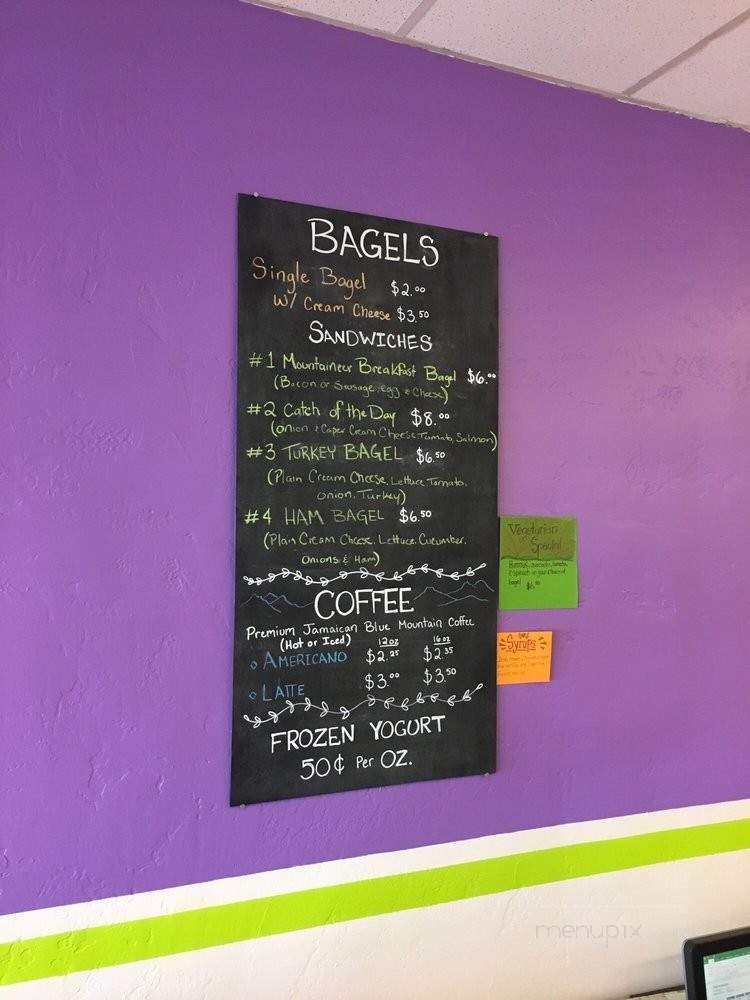 BAGELS
Single Bagel $2.00
W/ Cream Cheese $3.50
SANDWICHES
#1 Mountaineer Breakfast Bagel $6.00
(Bacon or Sausage, egg & Cheese)
#2 Catch of the Day $8.00
(onion & Caper Cream Cheese, Tomato, Salmon)
#3 TURKEY BAGEL $6.50
(Plain Cream Cheese, Lettuce, Tomato,
onion, Turkey)
#4 HAM BAGEL $6.50
(Plain Cream Cheese, Lettuce, Cucumber,
Onions & Ham)
COFFEE
Premium Jamaican Blue Mountain Coffee
(Hot or Iced) 12oz 16oz
AMERICANO $2.25 $2.35
LATTE $3.00 $3.50
FROZEN YOGURT
50¢ Per OZ.
Vegetarian
Special
Hummus, avocado, tomato,
& Spinach on your choice of
bagel
Syrups
menupix